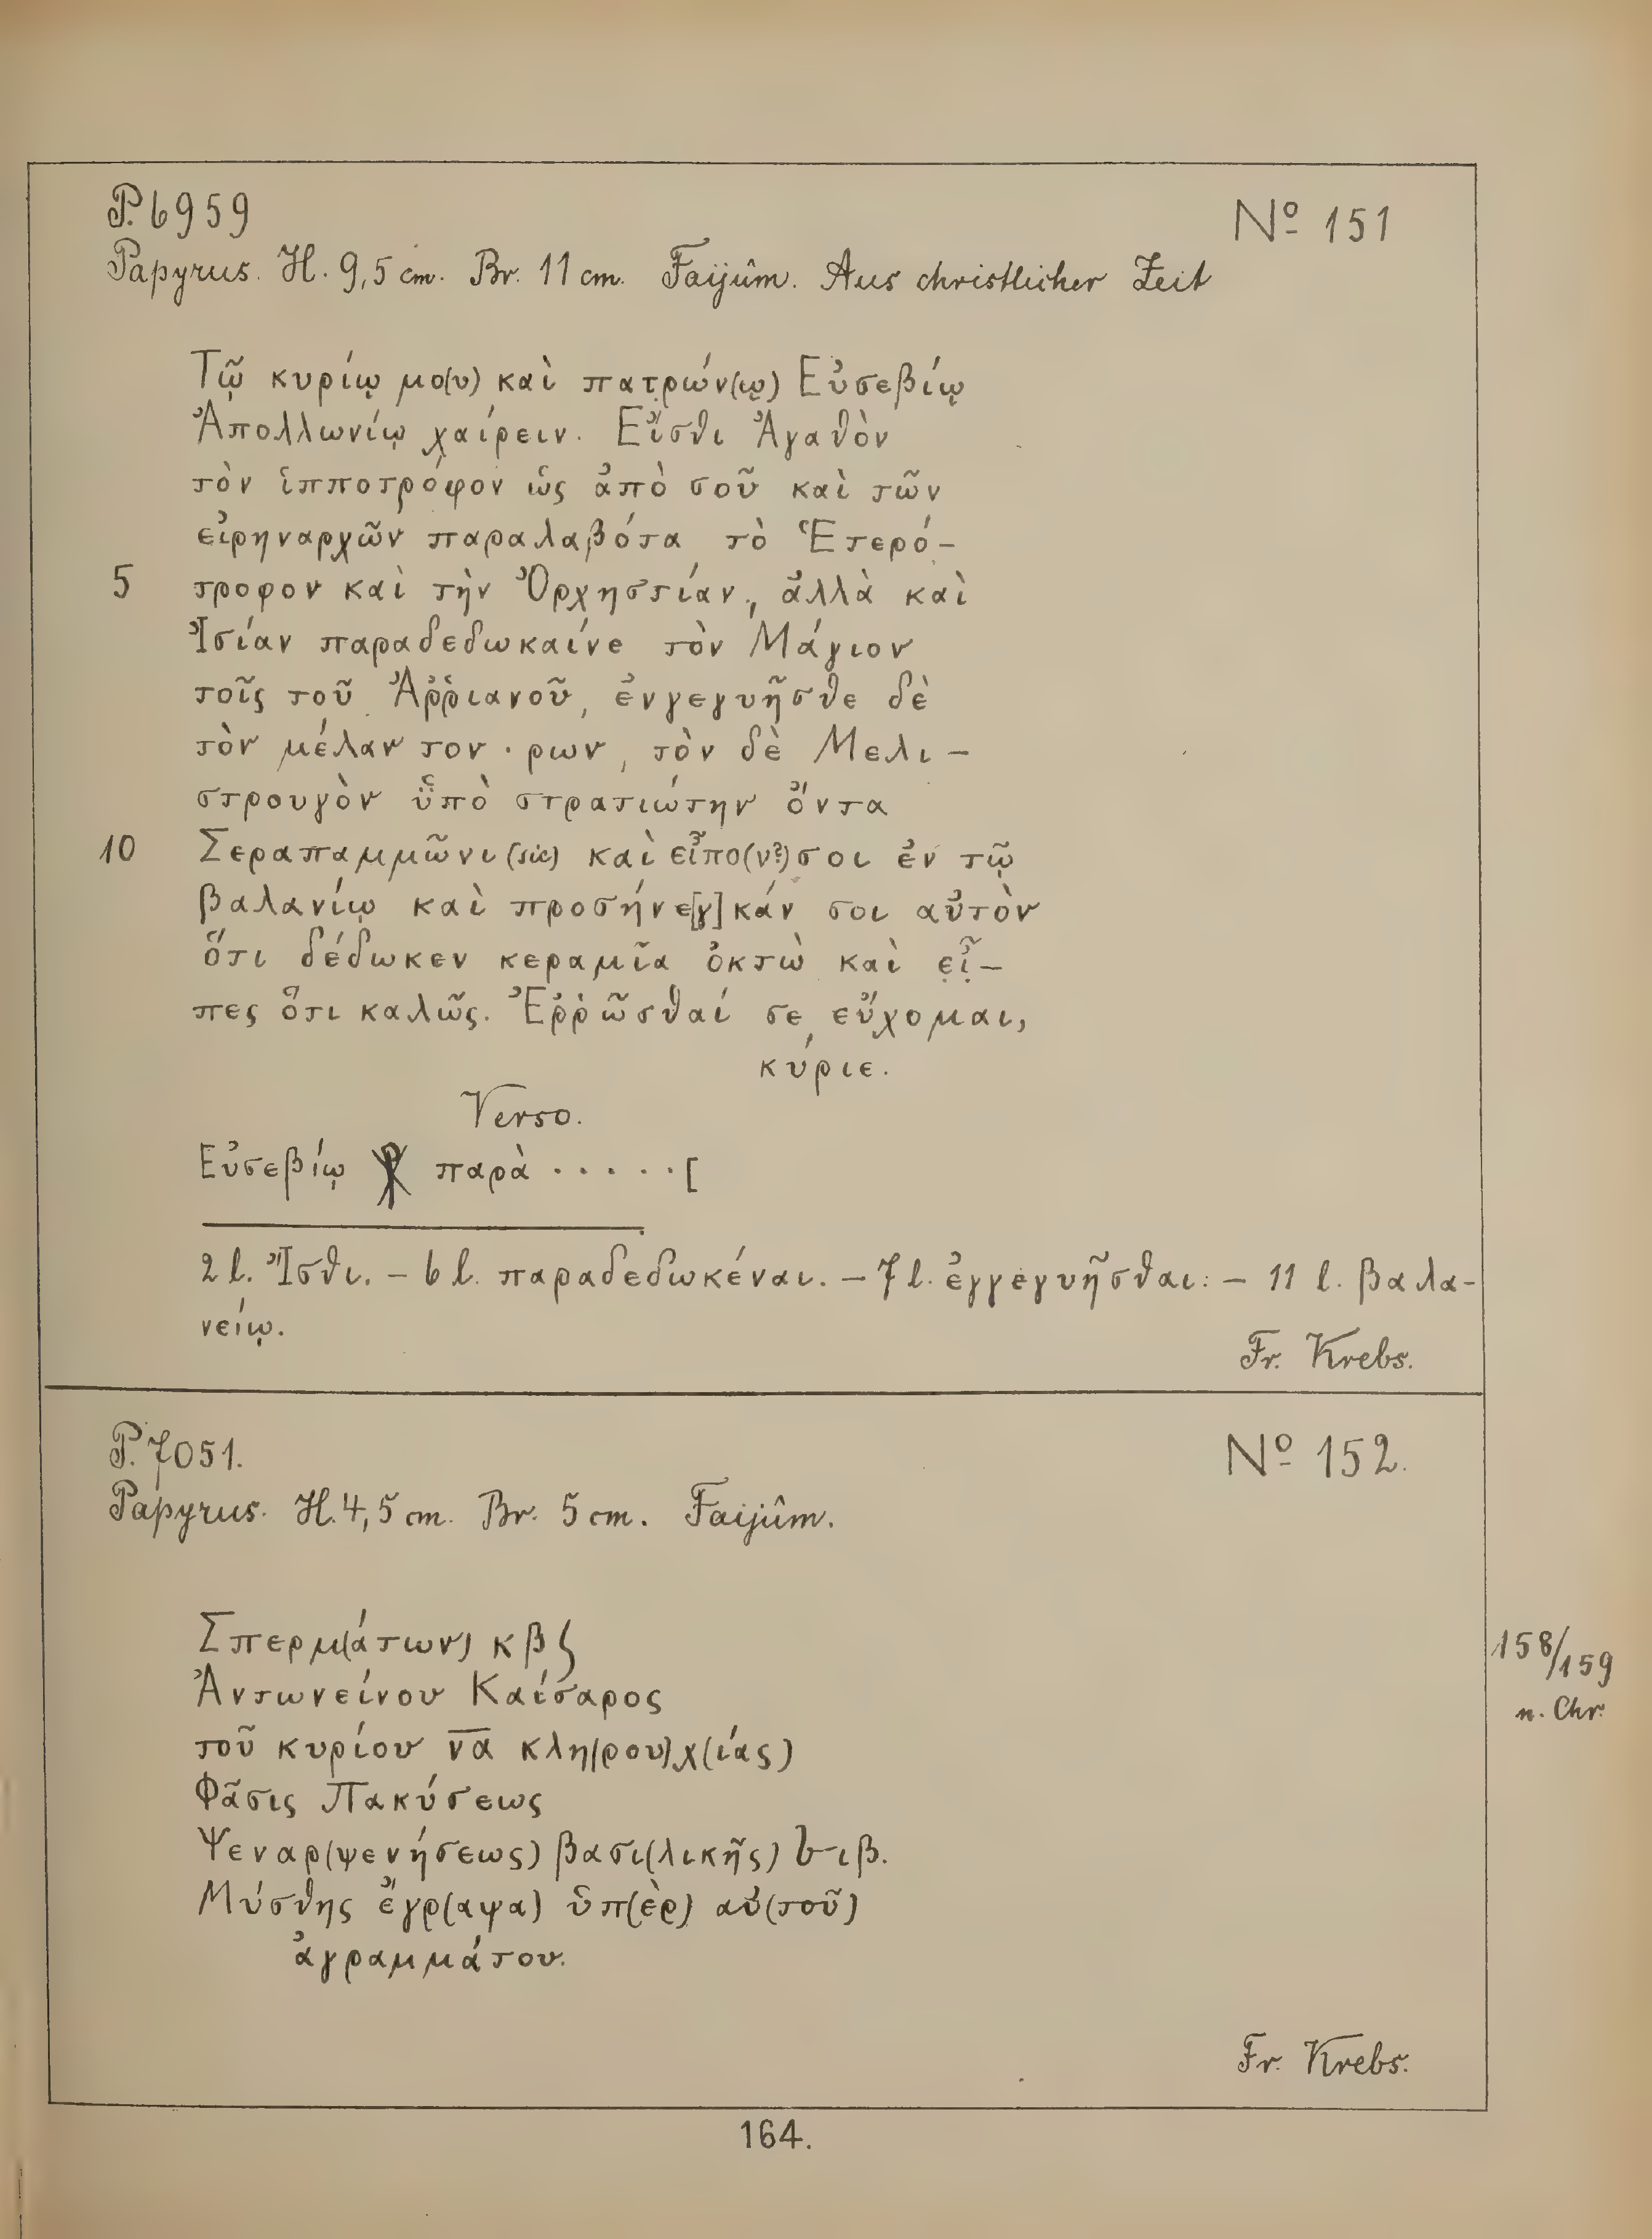 P. 6959
Nº 151
Papyrus. H. 9,5 cm. Br. 11 cm. Faijûm. Aus christlicher Zeit
Τῷ κυρίῳ μο(υ) καὶ πατρών(ῳ) Εὐσεβίῳ
Ἀπολλωνίῳ χαίρειν. Εἴσθι Ἀγαθὸν
τὸν ἱπποτρόφον ὡς ἀπὸ σοῦ καὶ τῶν
εἰρηναρχῶν παραλαβότα τὸ Ἑτερό-
5 τροφον καὶ τὴν Ὀρχηστίαν, ἀλλὰ καὶ
Ἰσίαν παραδεδωκαίνε τὸν Μάγιον
τοῖς τοῦ Ἀῤῥιανοῦ, ἐνγεγυῆσθε δὲ
τὸν μέλαν τον · ρων, τὸν δὲ Μελι-
στρουγὸν ὑπὸ στρατιώτην ὄντα
10 Σεραπαμμῶνι (sic) καὶ εἶπο(ν?) σοι ἐν τῷ
βαλανίῳ καὶ προσήνε[γ]κάν σοι αὐτὸν
ὅτι δέδωκεν κεραμῖα ὀκτὼ καὶ εἶ-
πες ὅτι καλῶς. Ἐῤῥῶσθαί σε εὔχομαι,
κύριε.
Verso.
Εὐσεβίῳ ⳩ παρὰ · · · · · · [
2 l. Ἴσθι. – 6 l. παραδεδωκέναι. – 7 l. ἐγγεγυῆσθαι. – 11 l. βαλα-
νείῳ.
Fr. Krebs.
P. 7051.
Nº 152.
Papyrus. H. 4,5 cm. Br. 5 cm. Faijûm.
Σπερμ(άτων) κβ
158/159
Ἀντωνείνου Καίσαρος
n. Chr.
τοῦ κυρίου ν̅α̅ κλη(ρου)χ(ίας)
Φᾶσις Πακύσεως
Ψεναρ(ψενήσεως) βασι(λικῆς) ιβ.
Μύσθης ἔγρ(αψα) ὑπ(ὲρ) αὐ(τοῦ)
ἀγραμμάτου.
Fr. Krebs.
164.